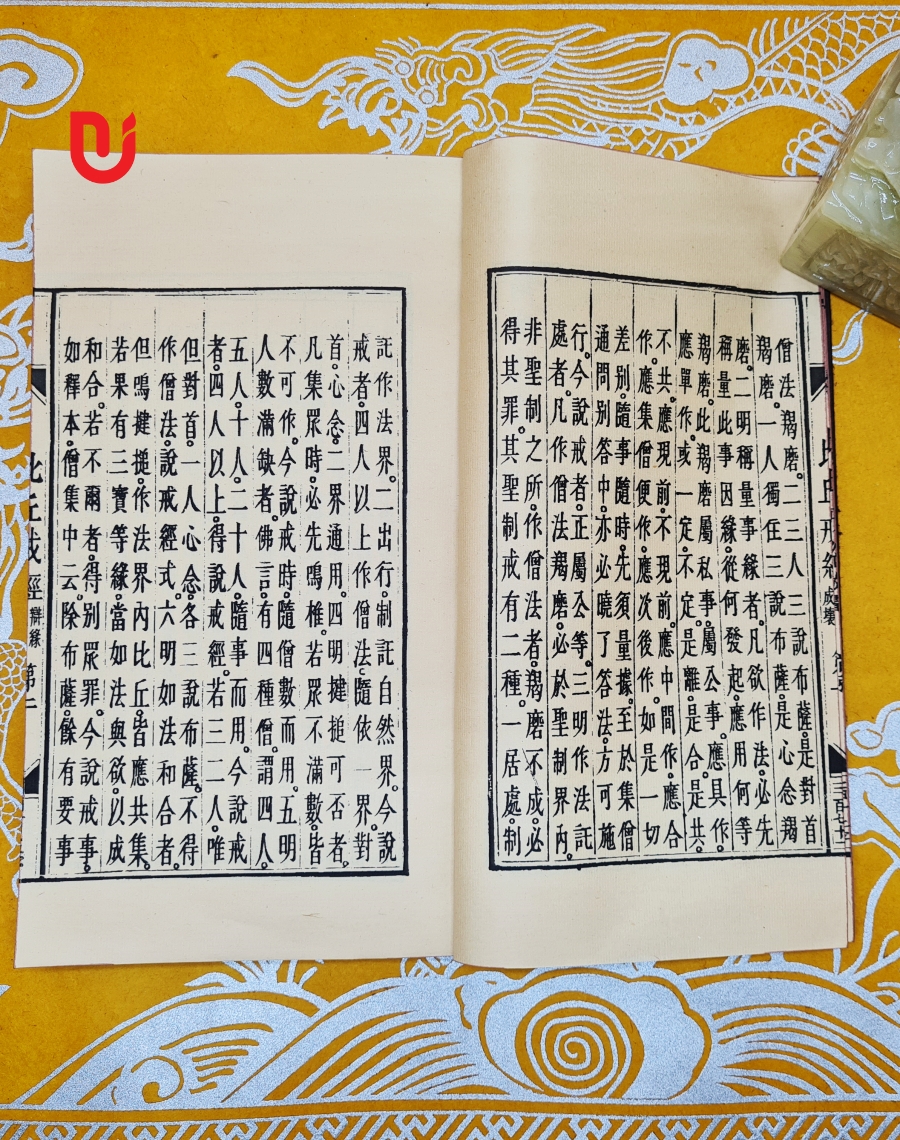 僧法羯磨。二三人三說布薩。是對首
羯磨。一人獨在三說布薩。是心念羯
磨。二明稱量事緣者。凡欲作法。必先
稱量此事因緣。從何發起。應用何等
羯磨。此羯磨屬私事。屬公事。應具作。
應單作。或一定。不定。是離。是合。是共。
不共。應現前。不現前。應中間作。應合
作。應集僧便作。應次後作。如是一切
差別。隨事隨時。先須量據。至於集僧
通問別答中。亦必曉了答法。方可施
行。今說戒者。正屬公等。三明作法託
處者。凡作僧法羯磨。必於聖制界內。
非聖制之所。作僧法者。羯磨不成。必
得其罪。其聖制戒有二種。一居處。制
託作法界。二出行。制託自然界。今說
戒者。四人以上作僧法。隨依一界。對
首。心念。二界通用。四明揵搥可否者。
凡集眾時。必先鳴椎。若眾不滿數。皆
不可作。今說戒時。隨僧數而用。五明
人數滿缺者。佛言。有四種僧。謂四人。
五人。十人。二十人。隨事而用。今說戒
者。四人以上。得說戒經。若三二人。唯
但對首。一人心念。各三說布薩。不得
作僧法。說戒經式。六明如法和合者。
但鳴揵搥。作法界內比丘。皆應共集。
若果有三寶等緣。當如法與欲。以成
和合。若不爾者。得別眾罪。今說戒事。
如釋本。僧集中云。除布薩。餘有要事
比丘戒經